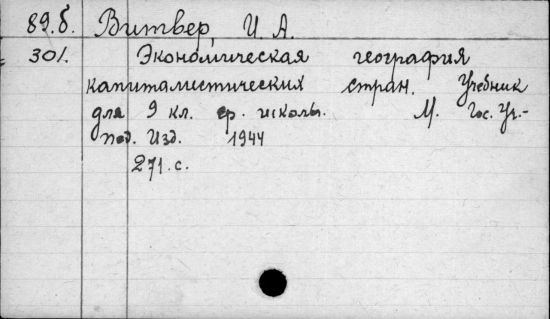 89.б. Витвер, И. А.
301. Экономическая география
капиталистических стран. Учебник
для 9 кл. ср. школы. М. Гос. Уч.-
пед. Изд. 1944
271. с.